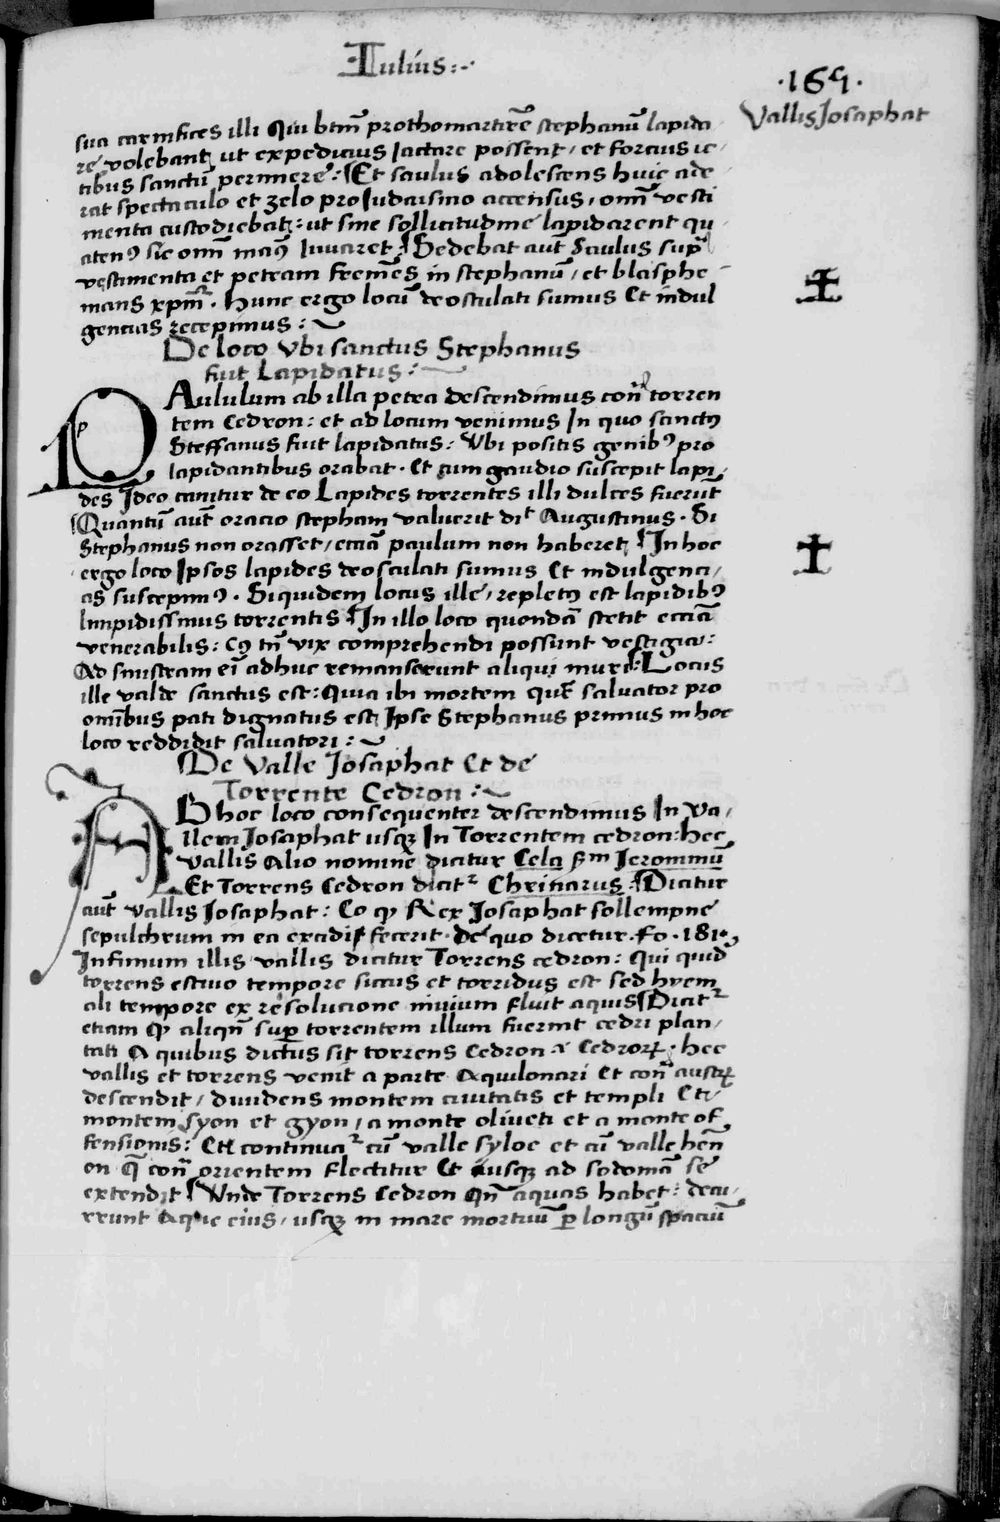 Iulius:-.
.165.
Vallis Josaphat
sua carnifices illi Qui btm̄ prothomartirē stephanū lapida
re volebant, ut expedicius Iactare possent, et forcius ic
tibus sanctū perimere: Et saulus adolescens huic ade
rat spectaculo et zelo pro Iudaismo accensus, omn̄ vesti
menta custodiebat: ut sine sollicitudine lapidarent qu
atenꝰ sic omn̄ manꝰ Iuvaret Sedebat aut̄ Saulus sup
vestimenta et petram fremēs in stephanū, et blasphe
mans xpm̄. Hunc ergo locū deosculati sumus Et indul
gencias recepimus:
De loco Vbi sanctus Stephanus
fuit Lapidatus:
PAululum ab illa petra descendimus con̄ torren
tem Cedron: et ad locum venimus In quo sanctꝰ
Steffanus fuit lapidatus: Vbi positis genibꝰ pro
lapidantibus orabat. Et cum gaudio suscepit lapi,
des Ideo canitur de eo Lapides torrentes illi dulces fuerūt
Quantū aut̄ oracio stephani valuerit dit Augustinus. Si
Stephanus non orasset, ecciā paulum non haberet In hoc
ergo loco Ipsos lapides deosculati sumus Et indulgenci,
as suscepimꝰ. Siquidem locus ille, repletꝰ est lapidibꝰ
limpidissimus torrentis In illo loco quondā stetit ecciā
venerabilis: Cꝰ tn̄ vix comprehendi possunt vestigia:
Ad sinistram ei adhuc remanserunt aliqui muri: Locus
ille valde sanctus est: Quia ibi mortem quē salvator pro
omībus pati dignatus est Ipse Stephanus primus in hoc
loco reddidit salvatori:
De Valle Josaphat Et de
Torrente Cedron:
AB hoc loco consequenter descendimus In va,
llem Josaphat usqꝫ In Torrentem cedron: hec
vallis Alio nomine dicitur Cela sm̄ Jeronimū
Et Torrens Cedron dicitr Chrinarus: Dicitur
aut̄ vallis Josaphat: Eo qꝫ Rex Josaphat sollempne
sepulchrum in ea excidi fecerit. de quo dicetur. fo. 181.
Infimum illis vallis dicitur Torrens cedron: Qui quid
torrens estivo tempore siccus et torridus est sed hyem
ali tempore ex resolucione nivium fluit aquis Dicitr
etiam qꝫ aliqn̄ sup torrentem illum fuerint cedri plan,
tati A quibus dictus sit torrens Cedron .i. Cedroꝝ. hec
vallis et torrens venit a parte Aquilonari Et con̄ austꝝ
descendit, dividens montem civitatis et templi Et
montem syon et gyon, a monte oliveti et a monte of
fensionis: Et continuatr cū valle syloe et cū valle hen̄
on q̄ con̄ orientem flectitur Et usqꝫ ad sodomā se
extendit Vnde Torrens Cedron Qn̄ aquas habet: decu,
rrunt Aque eius, usqꝫ in mare mortuū ꝑ longū spaciū